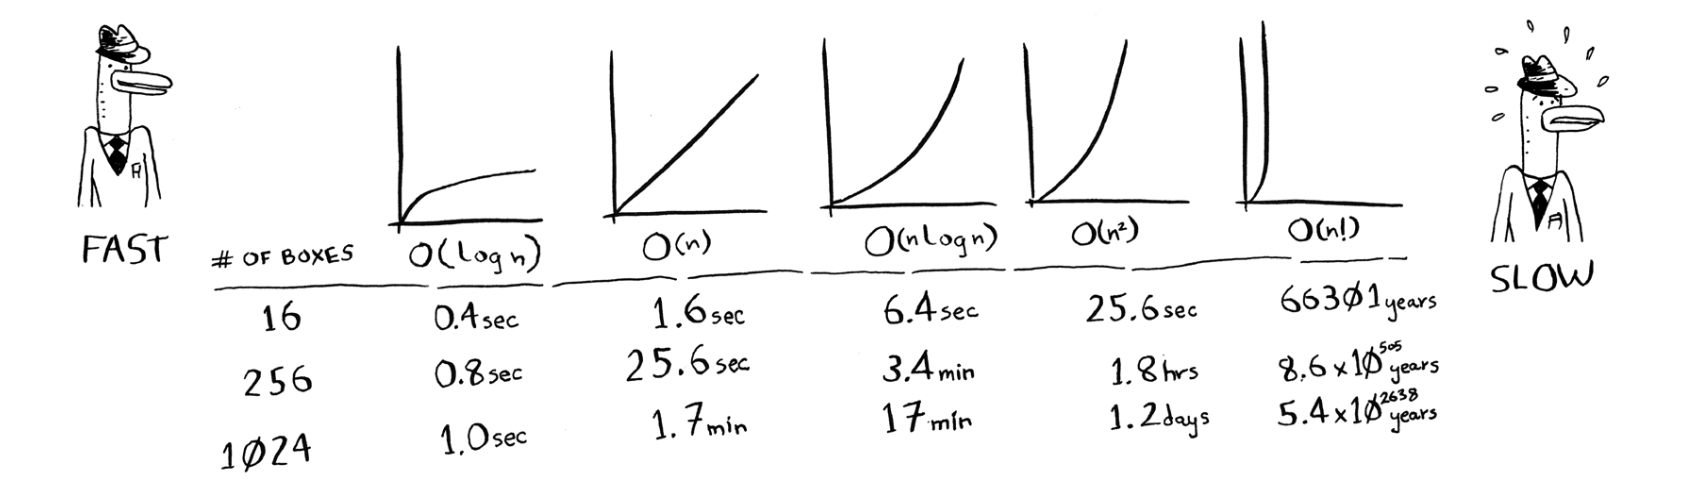 FAST
# OF BOXES O(log n) O(n) O(n log n) O(n²) O(n!)
SLOW
16 0.4 sec 1.6 sec 6.4 sec 25.6 sec 66301 years
256 0.8 sec 25.6 sec 3.4 min 1.8 hrs 8.6 x 10⁵⁰⁵ years
1024 1.0 sec 1.7 min 17 min 1.2 days 5.4 x 10²⁶³⁸ years